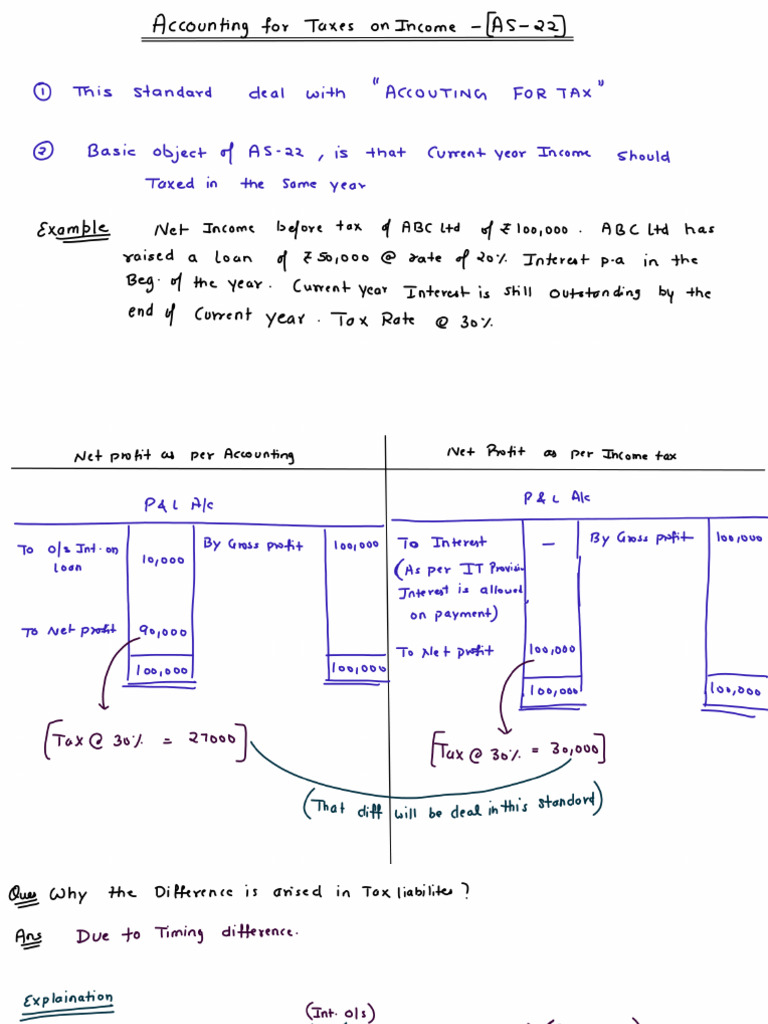 Accounting for Taxes on Income - [AS-22]
① This standard deal with "ACCOUTING FOR TAX"
② Basic object of AS-22, is that Current year Income should
Taxed in the same year
Example Net Income before tax of ABC Ltd of ₹100,000. ABC Ltd has
raised a loan of ₹50,000 @ rate of 20% Interest p.a in the
Beg. of the year. Current year Interest is still outstanding by the
end of Current year. Tax Rate @ 30%
Net profit as per Accounting
P & L A/c
To o/s Int. on 10,000 By Gross profit 100,000
loan
To Net profit 90,000
100,000 100,000
[Tax @ 30% = 27000]
Net Profit as per Income tax
P & L A/c
To Interest — By Gross profit 100,000
(As per IT Provision
Interest is allowed
on payment)
To Net profit 100,000
100,000 100,000
[Tax @ 30% = 30,000]
(That diff will be deal in this standard)
Ques Why the Difference is arised in Tax liabilites?
Ans Due to Timing difference.
Explaination
(Int. o/s)